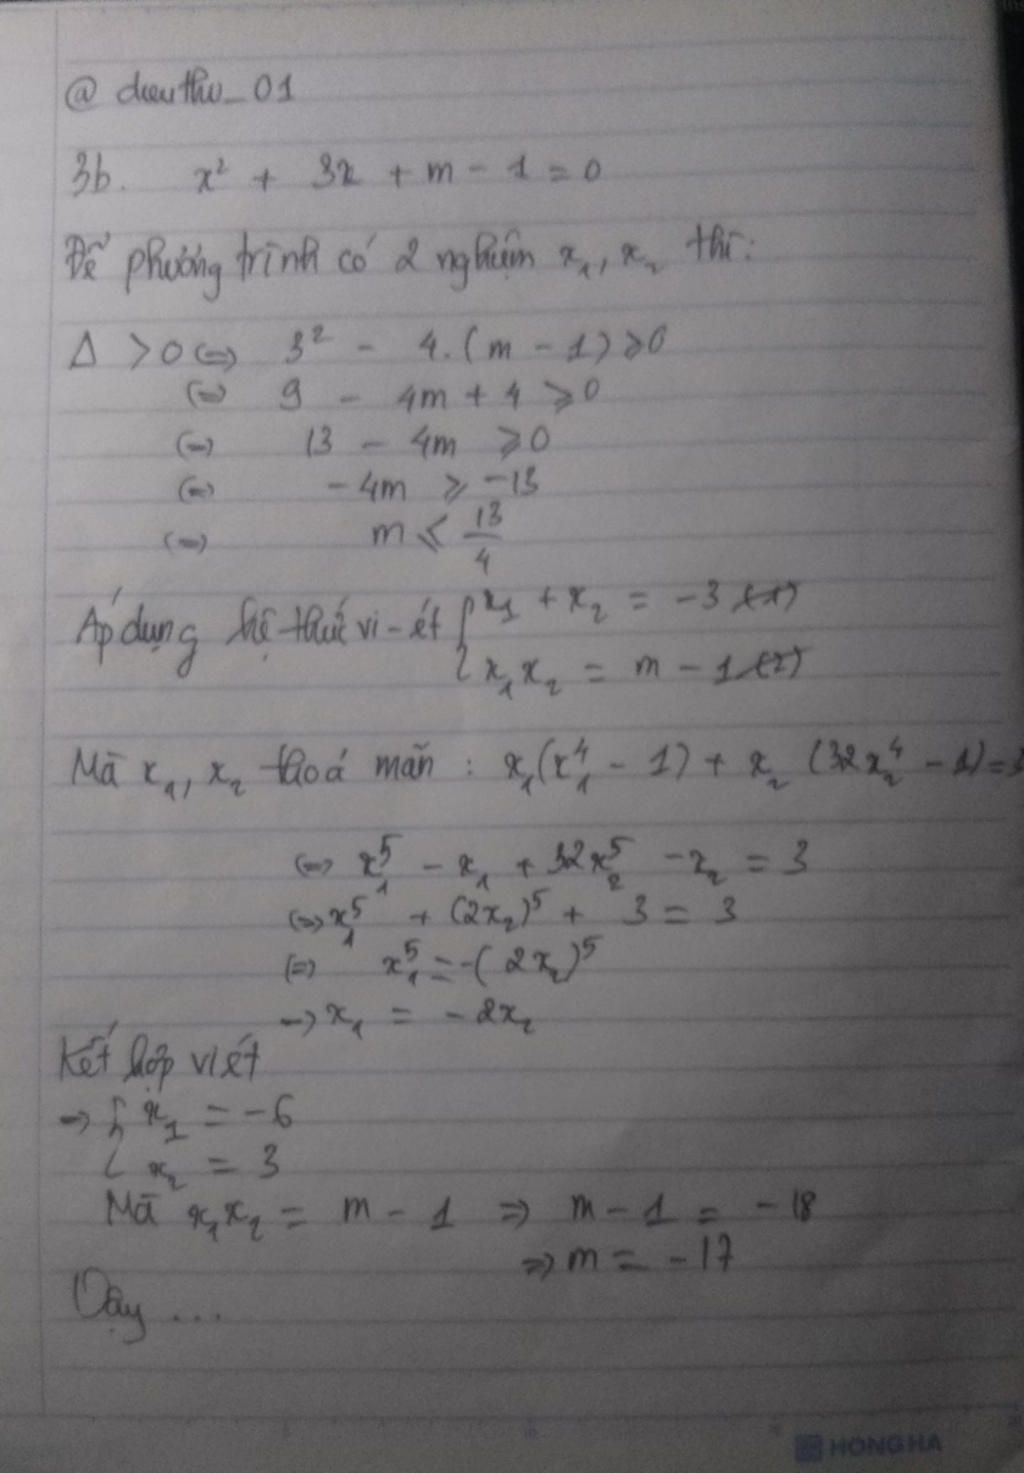 @ dieuthu_01
3b. x² + 3x + m - 1 = 0
Để phương trình có 2 nghiệm x₁, x₂ thì:
Δ > 0 (=) 3² - 4.(m - 1) ⩾ 0
(=) 9 - 4m + 4 ⩾ 0
(=) 13 - 4m ⩾ 0
(=) -4m ⩾ -13
(=) m ⩽ 13/4
Áp dụng hệ thức vi-ét { x₁ + x₂ = -3 (1)
x₁x₂ = m - 1 (2)
Mà x₁, x₂ thoả mãn : x₁(x₁⁴ - 1) + x₂ (32x₂⁴ - 1) = 3
(=) x₁⁵ - x₁ + 32x₂⁵ - x₂ = 3
(=) x₁⁵ + (2x₂)⁵ + 3 = 3
(=) x₁⁵ = -(2x₂)⁵
-> x₁ = -2x₂
Kết hợp viét
=> { x₁ = -6
x₂ = 3
Mà x₁x₂ = m - 1 => m - 1 = -18
=> m = -17
Vậy ...
HONG HA